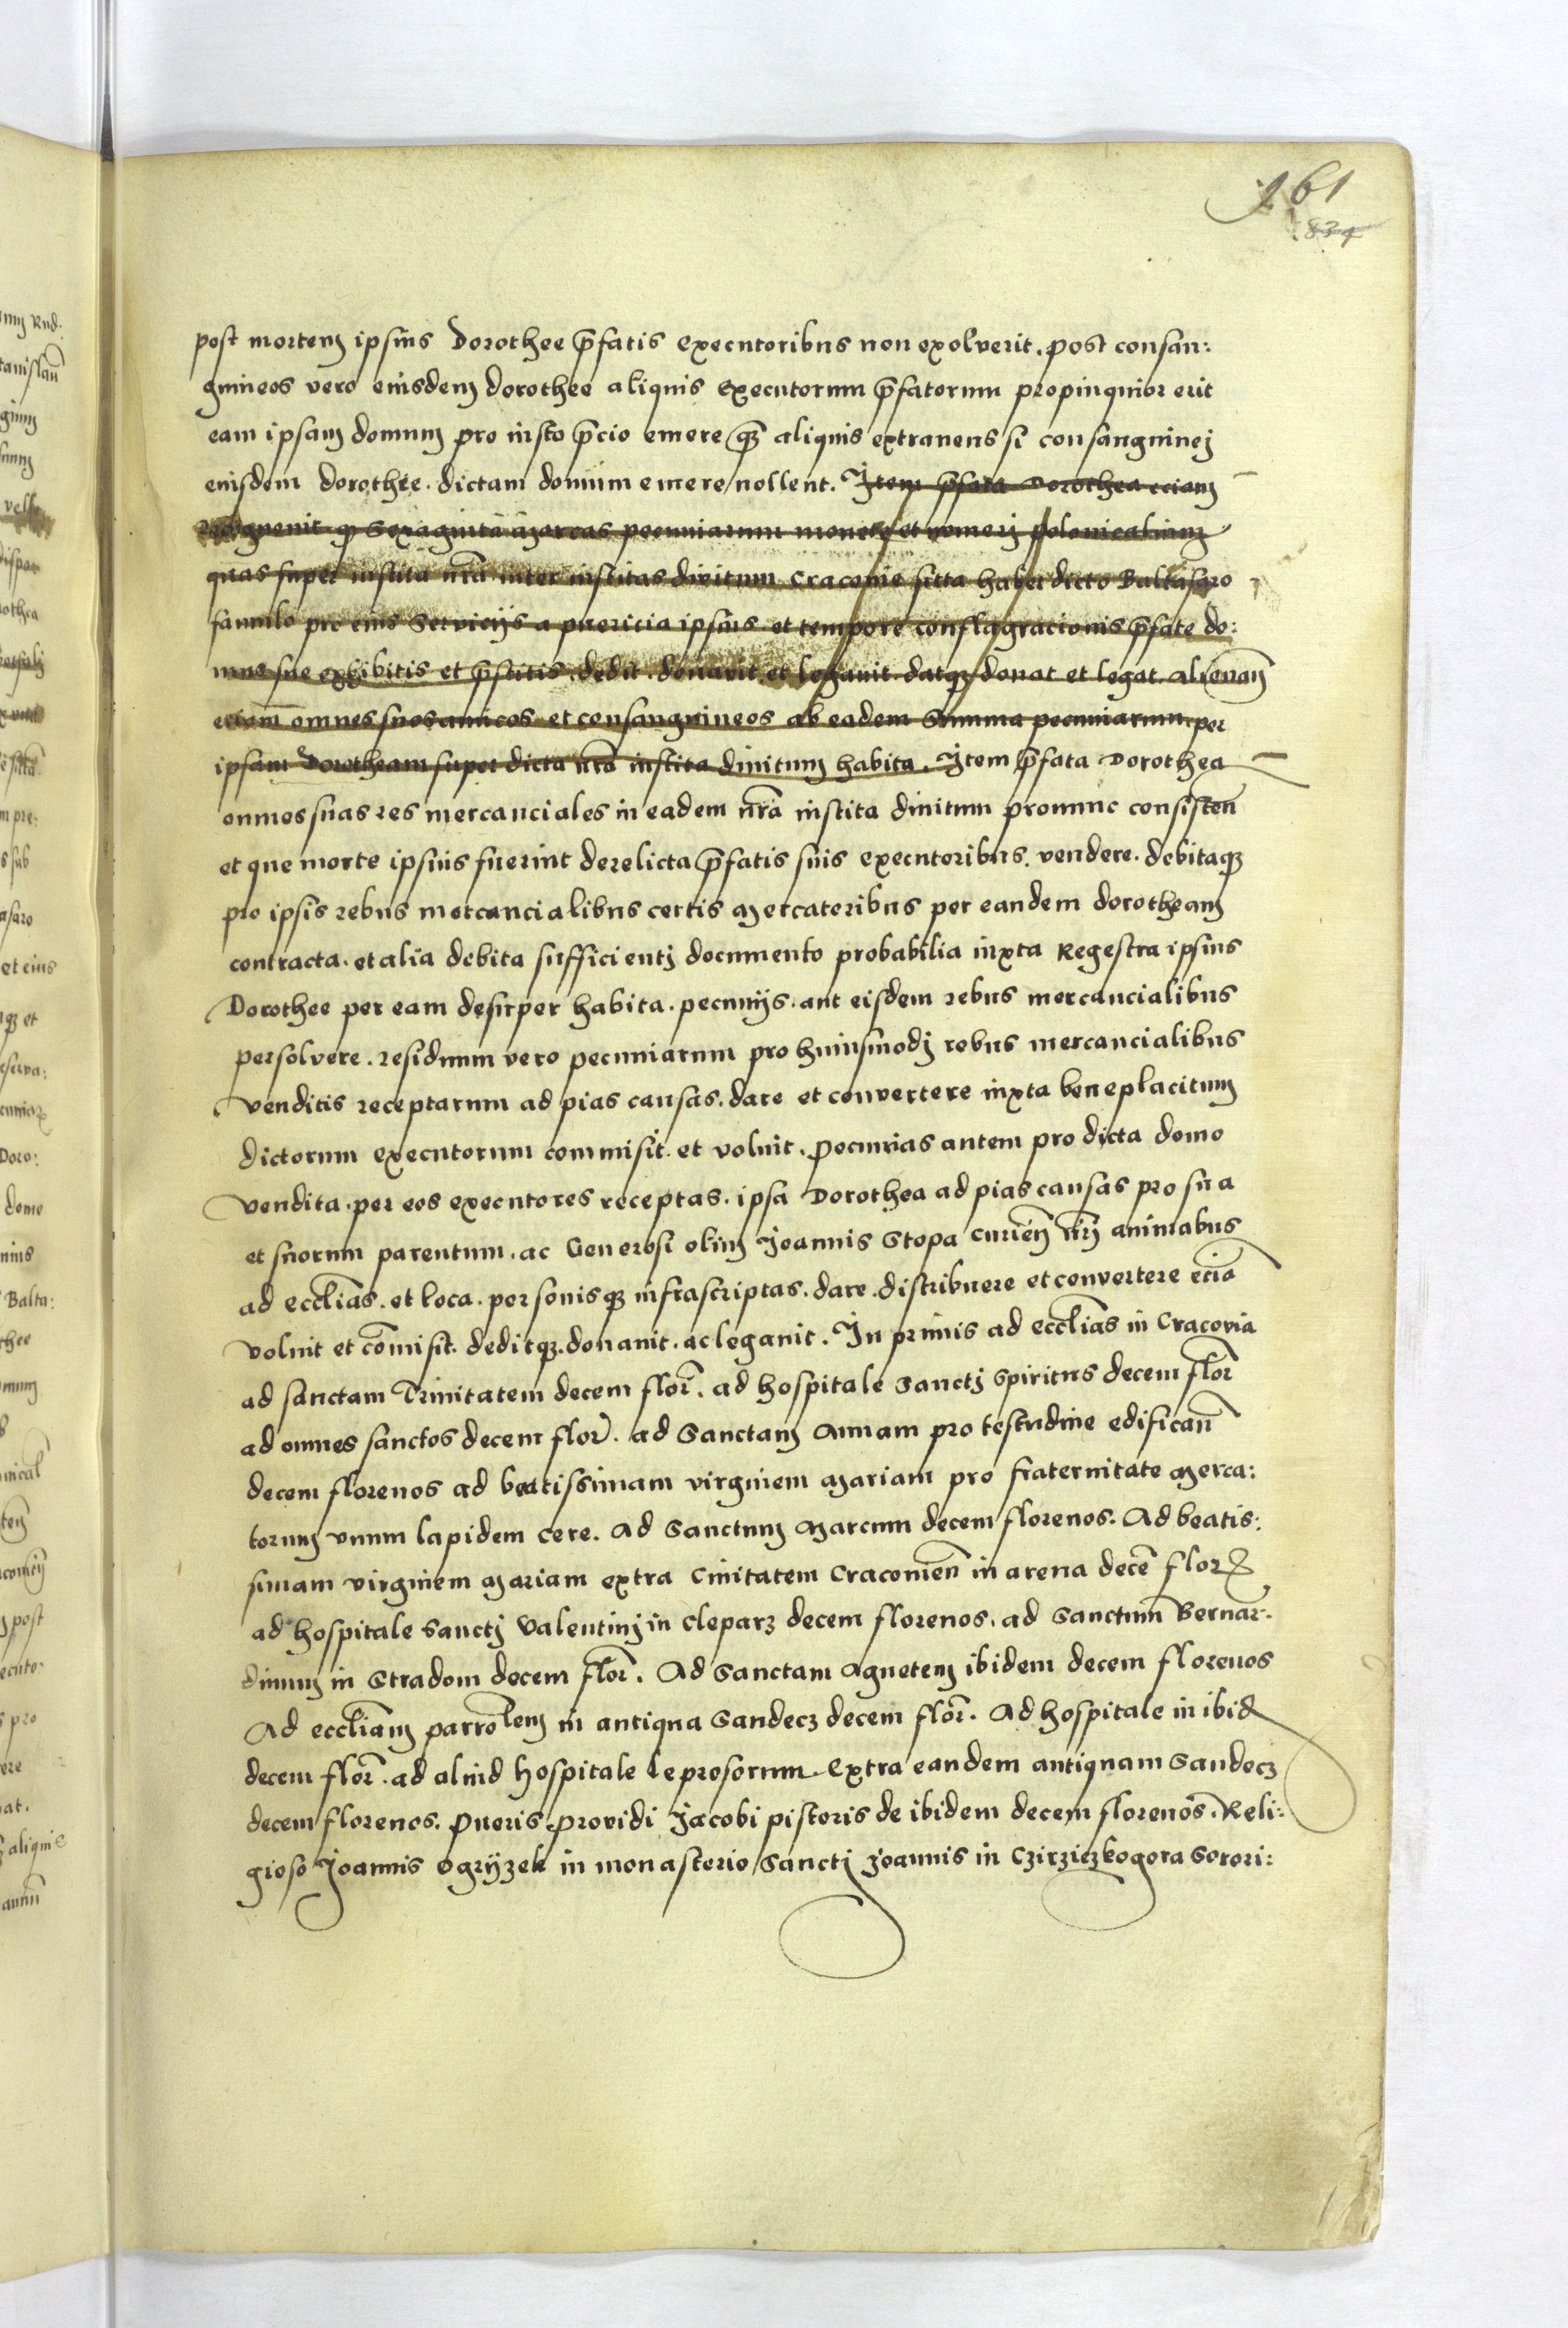 161
834
post mortem ipsius Dorothee p̄fatis executoribus non exolverit. post consan:
guineos vero eiusdem dorothee aliquis executorum p̄fatorum propinquior erit
eam ipsam domum pro iusto p̄cio emere q̄ aliquis extraneus si consanguinej
eiusdem dorothee. dictam domum emere nollent. Item p̄fata Dorothea eciam
q sexaginta Marcas pecuniarum monete et numerj polonicalium
quas super instita nr̄a inter institas divitum Cracovie sitta habet dicto Baltasaro
famulo pro eius Serviciis a puericia ipsius et tempore conflagracionis p̄fate do:
mus sue exhibitis et p̄stitis. dedit. donavit et legavit. datq; donat et legat. alienan̄
eciam omnes suos amicos et consanguineos ab eadem Summa pecuniarum per
ipsam Dorotheam super dicta nr̄a instita divitum habita. Item p̄fata Dorothea
omnes suas res mercanciales in eadem nr̄a instita divitum pronunc consisten̄
et que morte ipsius fuerint derelicta p̄fatis suis executoribus. vendere. debitaq;
pro ipsis rebus mercancialibus certis Mercatoribus per eandem dorotheam
contracta. et alia debita sufficientj documento probabilia iuxta Regestra ipsius
Dorothee per eam desuper habita. pecuniis. aut eisdem rebus mercancialibus
persolvere. residuum vero pecuniarum pro huiusmodj rebus mercancialibus
venditis receptarum ad pias causas. dare et convertere iuxta beneplacitum
dictorum executorum commisit. et voluit. Pecunias autem pro dicta domo
vendita. per eos executores receptas. ipsa Dorothea ad pias causas pro sua
et suorum parentum. ac Generosi olim Joannis Stopa curien̄ nr̄j animabus
ad eccl̄ias. et loca. personisq; infrascriptas. dare. distribuere et convertere eciā
voluit et cōmisit. deditq;. donavit. ac legavit. In primis ad eccl̄ias in Cracovia
ad sanctam Trinitatem decem flor̄. ad hospitale Sanctj Spiritus decem flor̄
ad omnes sanctos decem flor̄. ad Sanctam Annam pro testudine edifican̄
decem florenos ad beatissimam virginem Mariam pro fraternitate Merca:
torum unum lapidem cere. Ad Sanctum Marcum decem florenos. Ad beatis:
simam virginem Mariam extra Civitatem Cracovien̄ in arena decē flor̄
ad hospitale Sanctj Valentinj in Cleparz decem florenos. ad Sanctum Bernar:
dinum in Stradom decem flor̄. Ad Sanctam Agnetem ibidem decem florenos
Ad eccl̄iam parrōlem in antiqua Sandecz decem flor̄. Ad hospitale in ibid
decem flor̄. ad aliud hospitale leprosorum extra eandem antiquam Sandecz
decem florenos. Pueris. providi Jacobi pistoris de ibidem decem florenos. Reli:
gioso Joannis Ogryzek in monasterio Sanctj Joannis in Czirziczkogora Sorori: